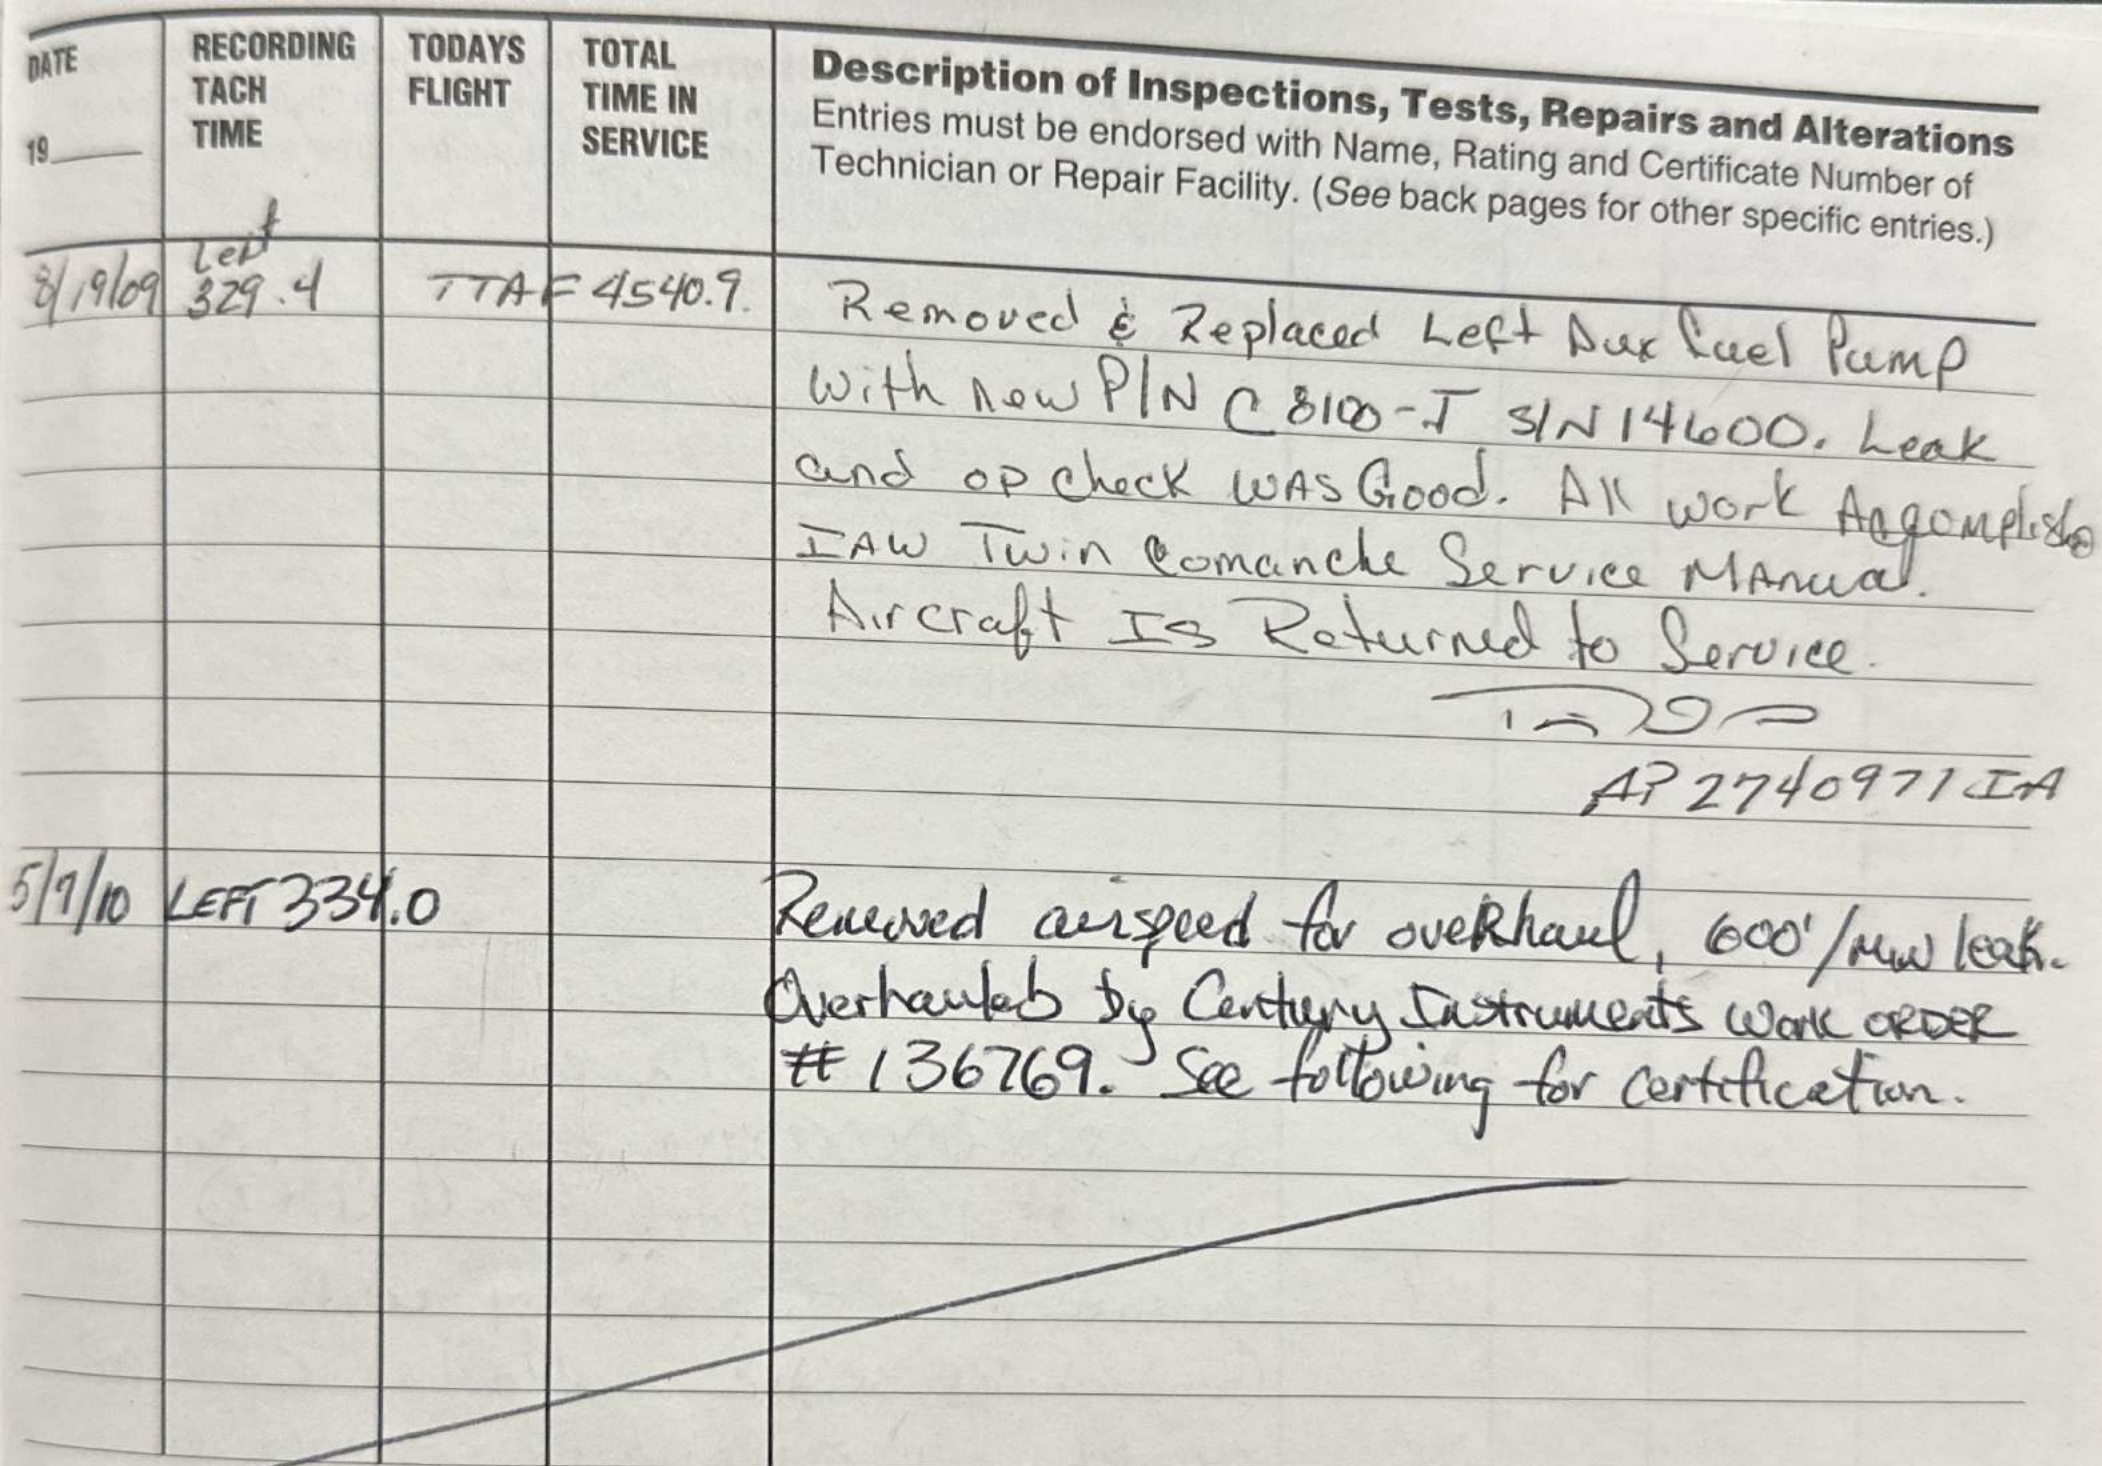 DATE
19
RECORDING
TACH
TIME
TODAYS
FLIGHT
TOTAL
TIME IN
SERVICE
Description of Inspections, Tests, Repairs and Alterations
Entries must be endorsed with Name, Rating and Certificate Number of
Technician or Repair Facility. (See back pages for other specific entries.)
Left
8/19/09 329.4 TTAF 4540.9. Removed & Replaced Left Aux fuel Pump
with new P/N C8100-J S/N 14600. Leak
and op check WAS Good. All work Accomplish
IAW Twin Comanche Service MAnual.
Aircraft Is Returned to Service.
AP 2740971 IA
LEFT 334.0 Removed airspeed for oveRhaul, 600'/MIN leak.
Overhauled by Century Instruments Work ORDER
# 136769. See following for certification.